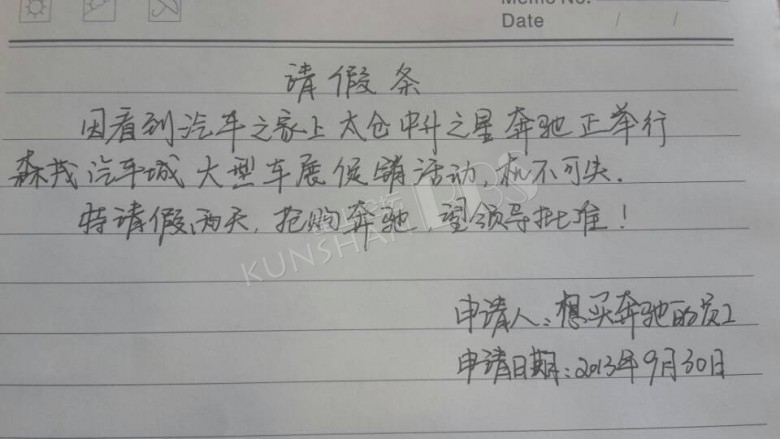 Memo No.
Date / /
请假条
因看到汽车之家上太仓中升之星奔驰正举行
森茂汽车城大型车展促销活动,机不可失.
特请假两天,抢购奔驰 望领导批准!
KUNSHAN BBS
申请人:想买奔驰的员工
申请日期:2013年9月30日